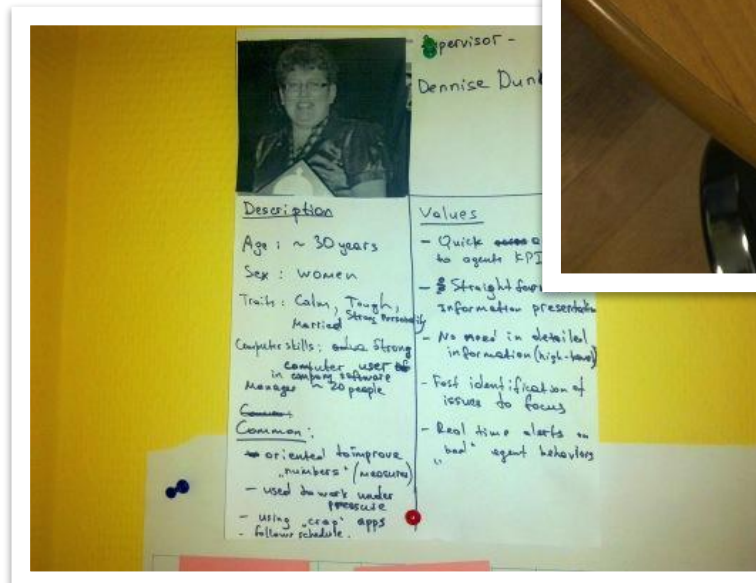 Supervisor -
Dennise
Description
Age : ~ 30 years
Sex : women
Traits : Calm, Tough,
Married Strong Personality
Computer skills : Strong
computer user
in company software
Manager ~ 20 people
Common :
- oriented to improve
„numbers“ (measures)
- used to work under
pressure
- using „crap“ apps
- follows schedule.
Values
- Quick
to agents KPI
- Straight
information presentation
- No need in detailed
information (high-level)
- Fast identification of
issues to focus
- Real time alerts on
„bad“ agent behaviors